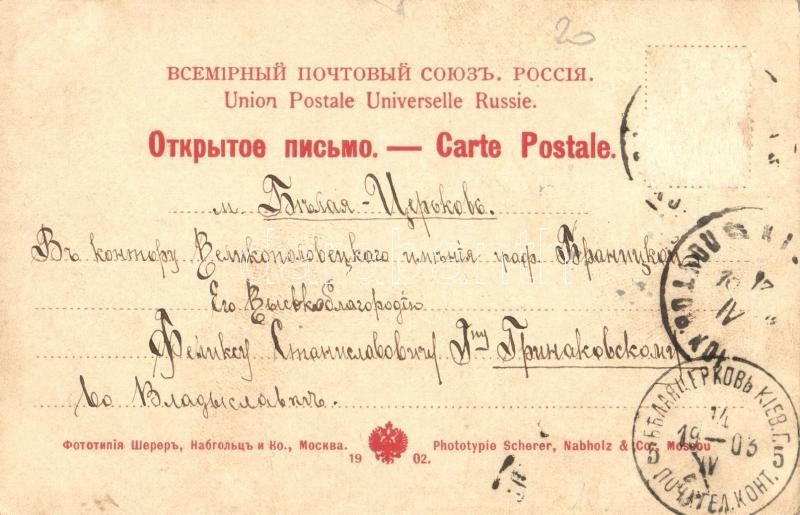 20
ВСЕМІРНЫЙ ПОЧТОВЫЙ СОЮЗЪ. РОССІЯ.
Union Postale Universelle Russie.
Открытое письмо. — Carte Postale.
м. Бѣлая-Церковь.
Въ контору Великополовецкаго имѣнія граф. Браницкой
Его Высокоблагородію
Феликсу Станиславовичу Гну Гринаковскому
во Владыславкѣ.
БѢЛАЯ ЦЕРКОВЬ КІЕВ. Г.
14
19—03
IV
5 5
ПОЧ. ТЕЛ. КОНТ.
Фототипія Шереръ, Набгольцъ и Ко., Москва. Phototypie Scherer, Nabholz & Co., Moscou
1902.
darabanth